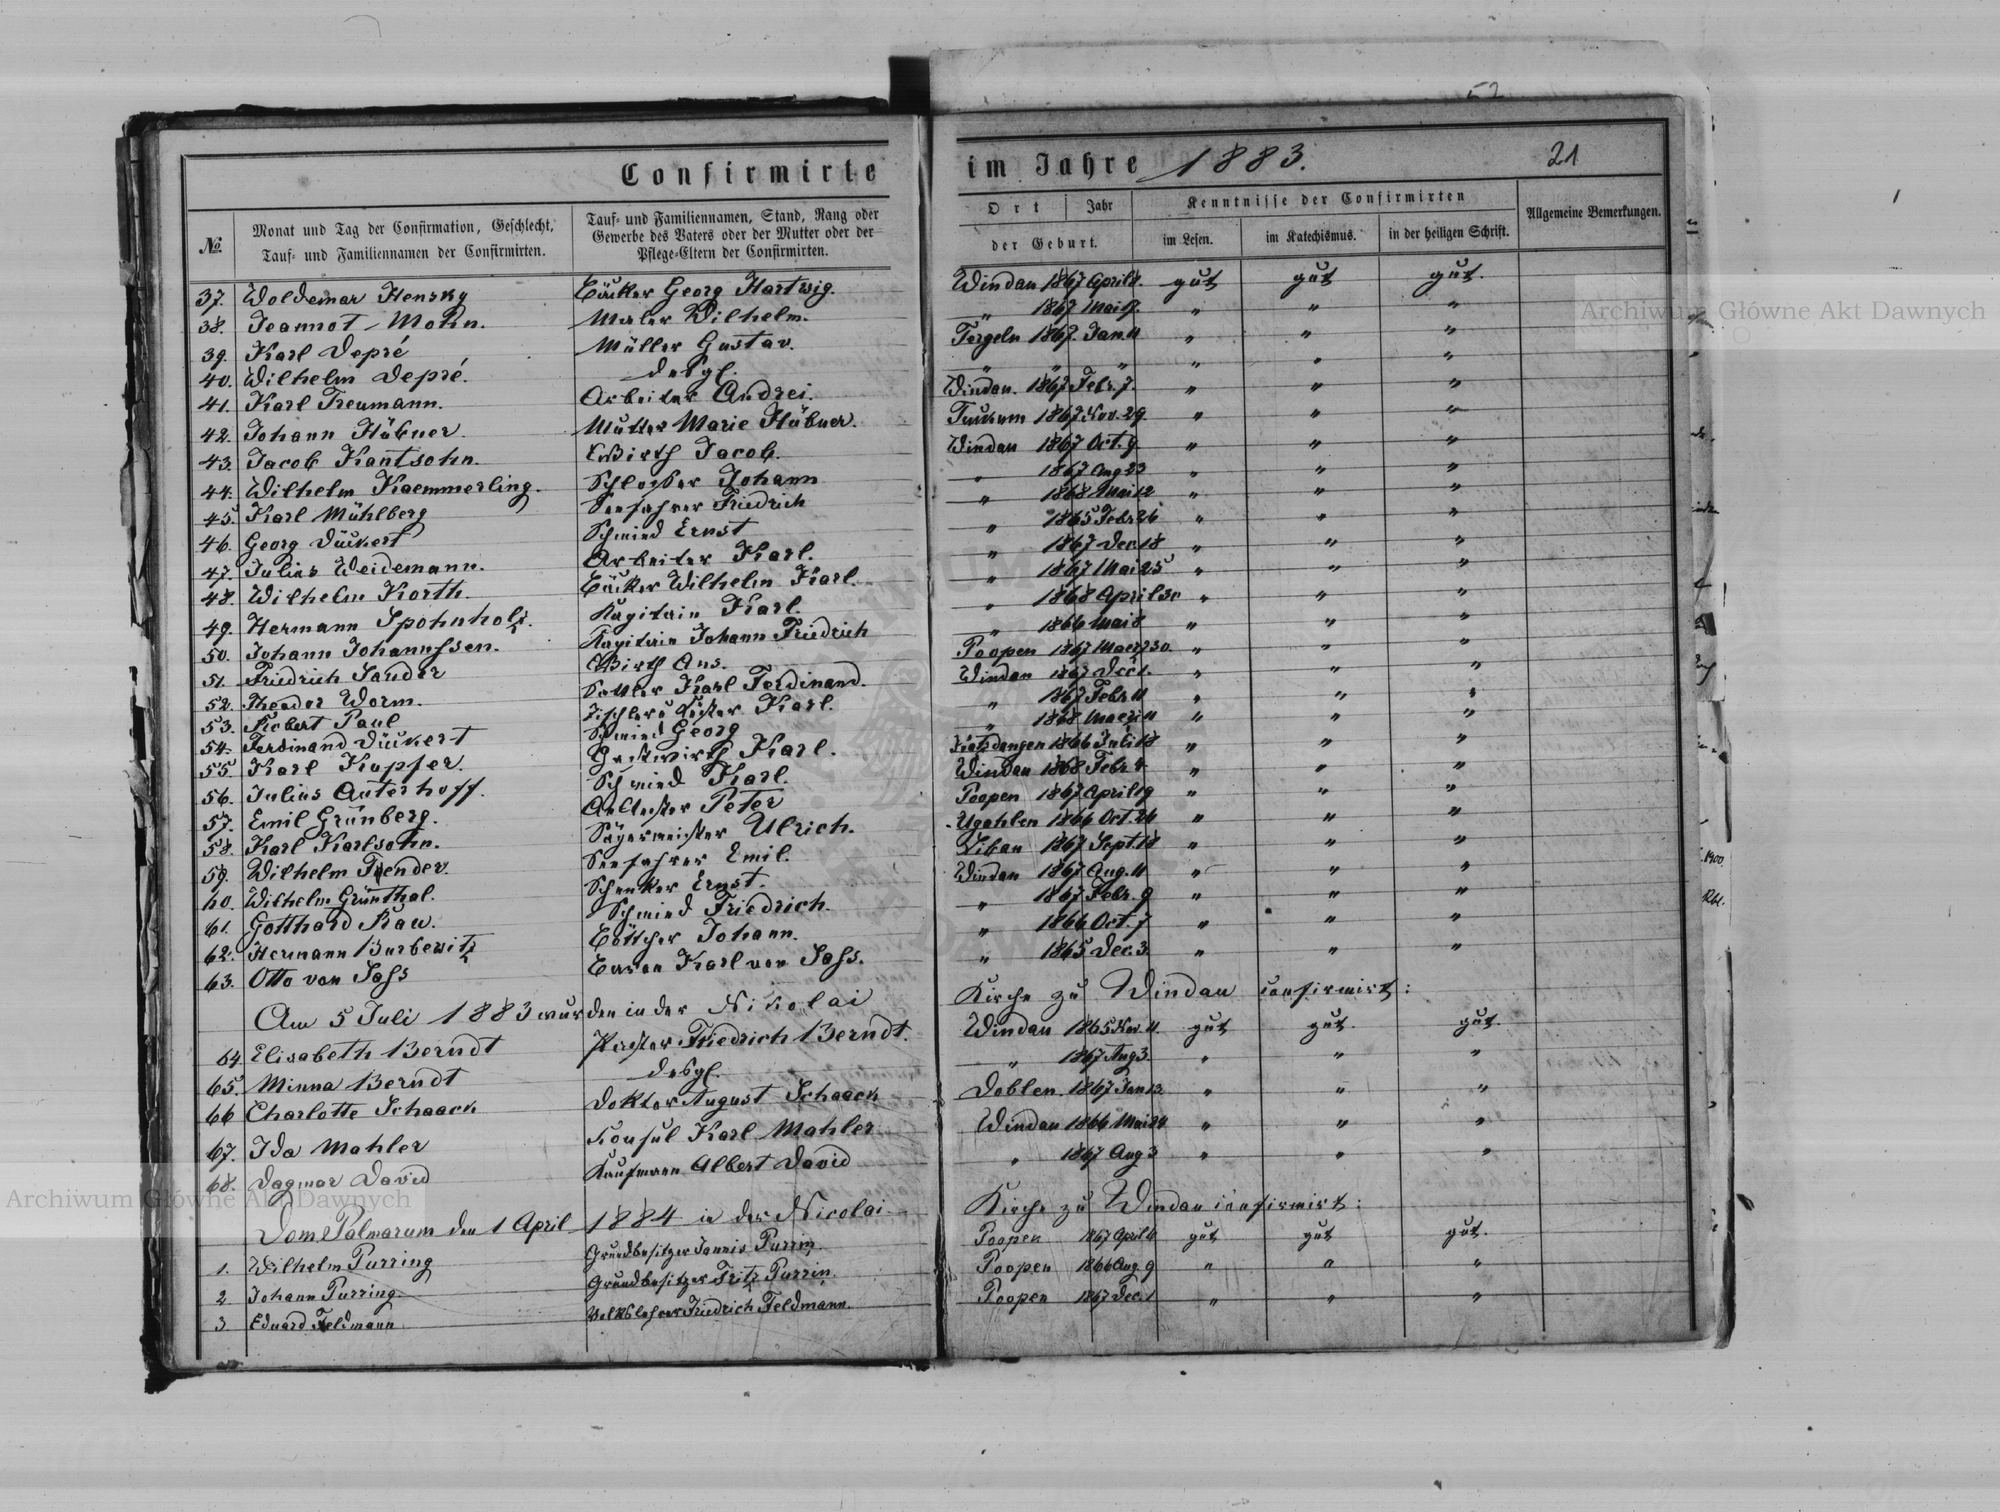 52
Confirmirte im Jahre 1883. 21
№ Monat und Tag der Confirmation, Geschlecht, Tauf- und Familiennamen der Confirmirten. Tauf- und Familiennamen, Stand, Rang oder Gewerbe des Vaters oder der Mutter oder der Pflege-Eltern der Confirmirten. Ort Jahr der Geburt. Kenntnisse der Confirmirten im Lesen. im Katechismus. in der heiligen Schrift. Allgemeine Bemerkungen.
37. Woldemar Hensky Bäcker Georg Hartwig. Windau 1867 April 8. gut gut gut.
38. Jeannot Mohn. Maler Wilhelm. " 1867 Mai 9. " " "
39. Karl Depré Müller Gustav. Tergeln 1867. Jan. 11 " " "
40. Wilhelm Depré. desgl. " " " " " "
41. Karl Treumann. Arbeiter Andrei. Windau. 1867 Febr. 7. " " "
42. Johann Hübner. Mutter Marie Hübner. Tuckum 1867 Nov. 29. " " "
43. Jacob Kantsohn. Wirth Jacob. Windau 1867 Oct. 9. " " "
44. Wilhelm Kaemmerling. Schlosser Johann " 1867 Aug 23 " " "
45. Karl Mühlberg Seefahrer Friedrich " 1868 Mai 12 " " "
46. Georg Dückert Schmied Ernst " 1865 Febr 26 " " "
47. Julius Weidemann. Arbeiter Karl. " 1867 Dec. 18 " " "
48. Wilhelm Korth. Bäcker Wilhelm Karl. " 1867 Mai 25 " " "
49. Hermann Spohnholz. Kapitain Karl. " 1868 April 30 " " "
50. Johann Johannssen. Kapitain Johann Friedrich " 1866 Mai 8 " " "
51. Friedrich Sander Wirth Ans. Poopen 1867 Maerz 30. " " "
52. Theodor Worm. Sattler Karl Ferdinand. Windau 1867 Dec 1. " " "
53. Robert Paul Karl. " 1867 Febr 11 " " "
54. Ferdinand Dückert Schmied Georg " 1868 Maerz 11 " " "
55. Karl Kupfer. Gastwirth Karl. Katzdangen 1866 Juli 18 " " "
56. Julius Auterhoff. Schmied Karl. Windau 1868 Febr 4 " " "
57. Emil Grünberg. Peter Poopen 1867 April 19 " " "
58. Karl Karlsohn. Sägermeister Ulrich. Ugahlen 1866 Oct. 26 " " "
59. Wilhelm Fender. Seefahrer Emil. Libau 1867 Sept. 18 " " "
60. Wilhelm Grünthal. Schenker Ernst. Windau 1867 Aug. 11 " " "
61. Gotthard Rau. Schmied Friedrich. " 1867 Febr. 9 " " "
62. Hermann Burbewitz Böttcher Johann. " 1866 Oct. 7 " " "
63. Otto von Sass Baron Karl von Sass. " 1865 Dec. 3. " " "
Am 5 Juli 1883 wurden in der Nikolai Kirche zu Windau confirmirt:
64. Elisabeth Berndt Pastor Friedrich Berndt. Windau 1865 Nov. 11. gut gut. gut.
65. Minna Berndt desgl. " 1867 Aug 3. " " "
66 Charlotte Schaack Doktor August Schaack Doblen. 1867 Jan 13. " " "
67. Ida Mahler Konsul Karl Mahler Windau 1866 Mai 24 " " "
68. Dagmar David Kaufmann Albert David " 1867 Aug 3 " " "
Dom. Palmarum den 1 April 1884 in der Nicolai Kirche zu Windau confirmirt:
1. Wilhelm Purring Grundbesitzer Jannis Purrin. Poopen 1867 April 11 gut gut gut.
2 Johann Purring Grundbesitzer Fritz Purrin. Poopen 1866 Aug. 9 " " "
3 Eduard Feldmann Volkslehrer Friedrich Feldmann. Poopen 1867 Dec. 1 " " "
Archiwum Główne Akt Dawnych
Archiwum Główne Akt Dawnych